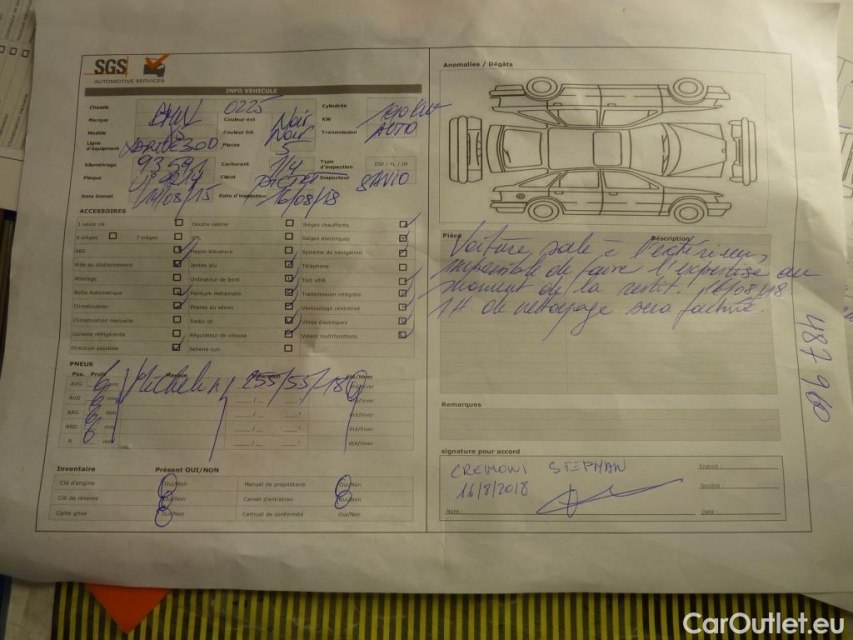 SGS
AUTOMOTIVE SERVICES
INFO VEHICULE
Chassis 0225 Cylindrée
Marque BMW Couleur ext Noir KW 190 KW
Modèle Couleur int Noir Transmission AUTO
Ligne d'équipement Places 5
Kilométrage Carburant Type d'inspection ESP / FL / IM
Plaque Client Inspecteur
Date 1mmat 16/08/18
ACCESSOIRES
Sièges chauffants
6 sièges 7 sièges Sièges électriques
ABS Système de navigation
Aide au stationnement Jantes alu Téléphone
Attelage Ordinateur de bord Toit vitré
Boîte Automatique Peinture métallisée Transmission intégrale
Climatisation Phares au xénon Verrouillage centralisé
Climatisation manuelle Radio cd Vitres électriques
Régulateur de vitesse Volant multifonctions
Direction assistée Sellerie cuir
PNEUS
Pos. Prof.
AVG 6 mm Michelin 255/55/18 Eté/hiver
AVD 6 mm Eté/hiver
ARG 6 mm Eté/hiver
ARD 6 mm Eté/hiver
R mm Eté/hiver
Inventaire Présent OUI/NON
Clé d'origine Oui/Non Manuel de propriétaire Oui/Non
Clé de réserve Oui/Non Carnet d'entretien Oui/Non
Carte grise Oui/Non Certificat de conformité Oui/Non
Anomalies / Dégâts
Pièce Description
Voiture sale à l'extérieur,
impossible de faire l'expertise au
moment de la restit. 16/08/18
1H de nettoyage sera facturé.
487 960
Remarques
signature pour accord
CREMONI STEPHAN
16/8/2018
Nom : Date :
CarOutlet.eu